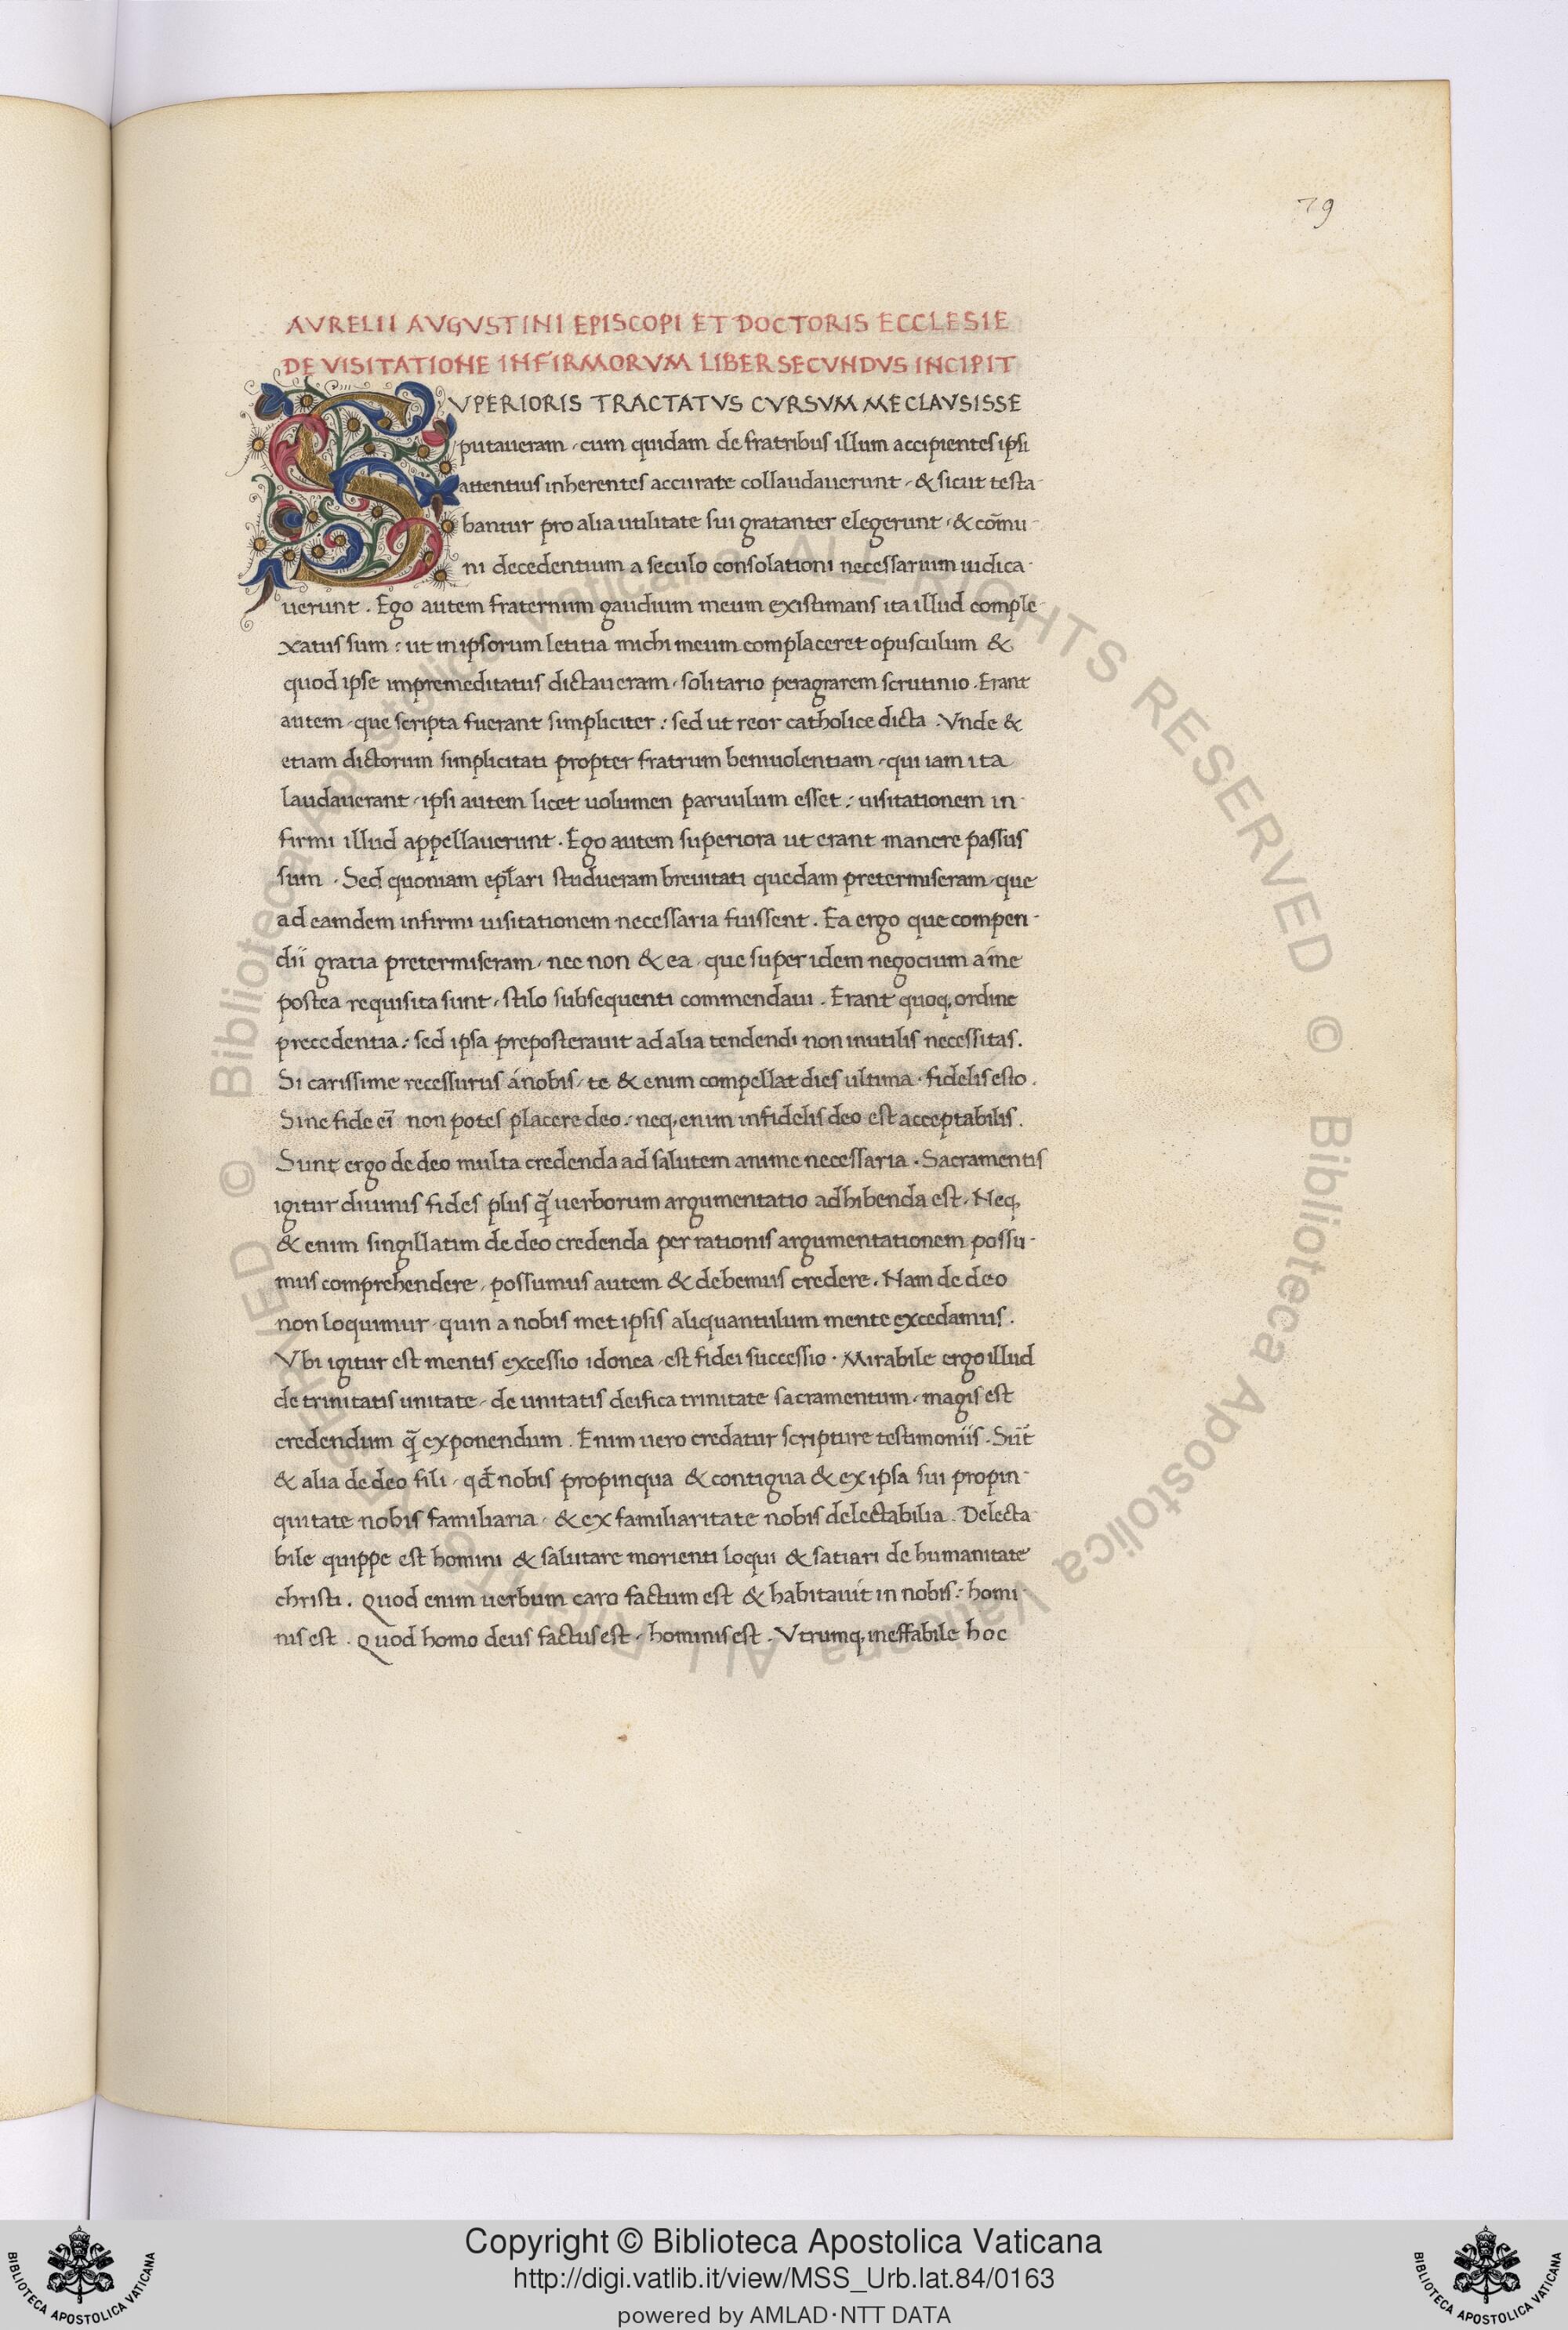 79
AVRELII AVGVSTINI EPISCOPI ET DOCTORIS ECCLESIE
DE VISITATIONE INFIRMORVM LIBER SECVNDVS INCIPIT
SVPERIORIS TRACTATVS CVRSVM ME CLAVSISSE
putaueram, cum quidam de fratribus illum accipientes ipsi
attentius inherentes accurate collaudauerunt, & sicut testa-
bantur pro alia utilitate sui gratanter elegerunt, & cōmu-
ni decedentium a seculo consolationi necessarium iudica-
uerunt. Ego autem fraternum gaudium meum existimans ita illud comple-
xatus sum: ut in ipsorum letitia michi meum complaceret opusculum &
quod ipse impremeditatus dictaueram, solitario peragrarem scrutinio. Erant
autem, que scripta fuerant simpliciter: sed ut reor catholice dicta. Vnde &
etiam dictorum simplicitati propter fratrum beniuolentiam, qui iam ita
laudauerant, ipsi autem licet uolumen paruulum esset: uisitationem in-
firmi illud appellauerunt. Ego autem superiora ut erant manere passus
sum. Sed quoniam ep̄lari studueram breuitati quedam pretermiseram, que
ad eamdem infirmi uisitationem necessaria fuissent. Ea ergo que compen-
dii gratia pretermiseram, nec non & ea, que super idem negocium a me
postea requisita sunt, stilo subsequenti commendaui. Erant quoq, ordine
precedentia: sed ipsa preposterauit ad alia tendendi non inutilis necessitas.
Si carissime recessurus a nobis, te & enim compellat dies ultima, fidelis esto.
Sine fide ei̅ non potes placere deo: neq, enim infidelis deo est acceptabilis.
Sunt ergo de deo multa credenda ad salutem anime necessaria. Sacramentis
igitur diuinis fides plus q̃ uerborum argumentatio adhibenda est. Neq,
& enim singillatim de deo credenda per rationis argumentationem possu-
mus comprehendere, possumus autem & debemus credere. Nam de deo
non loquimur, quin a nobis met ipsis aliquantulum mente excedamus.
Vbi igitur est mentis excessio idonea, est fidei successio. Mirabile ergo illud
de trinitatis unitate, de unitatis deifica trinitate sacramentum, magis est
credendum q̃ exponendum. Enim uero credatur scripture testimoniis. Sūt
& alia de deo fili, qd̄ nobis propinqua & contigua & ex ipsa sui propin-
quitate nobis familiaria, & ex familiaritate nobis delectabilia. Delecta-
bile quippe est homini & salutare morienti loqui & satiari de humanitate
christi. Quod enim uerbum caro factum est & habitauit in nobis: homi-
nis est. Quod homo deus factus est, hominis est. Vtrumq, ineffabile hoc
© Biblioteca Apostolica Vaticana ALL RIGHTS RESERVED © Biblioteca Apostolica Vaticana ALL RIGHTS RESERVED
Copyright © Biblioteca Apostolica Vaticana
http://digi.vatlib.it/view/MSS_Urb.lat.84/0163
powered by AMLAD·NTT DATA
BIBLIOTECA APOSTOLICA VATICANA
BIBLIOTECA APOSTOLICA VATICANA